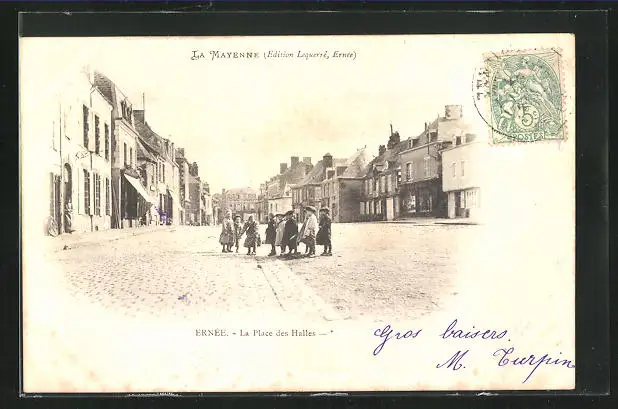 LA MAYENNE (Edition Lequerré, Ernée)
5c
POSTES
ERNÉE. - La Place des Halles -
Gros baisers.
M. Turpin